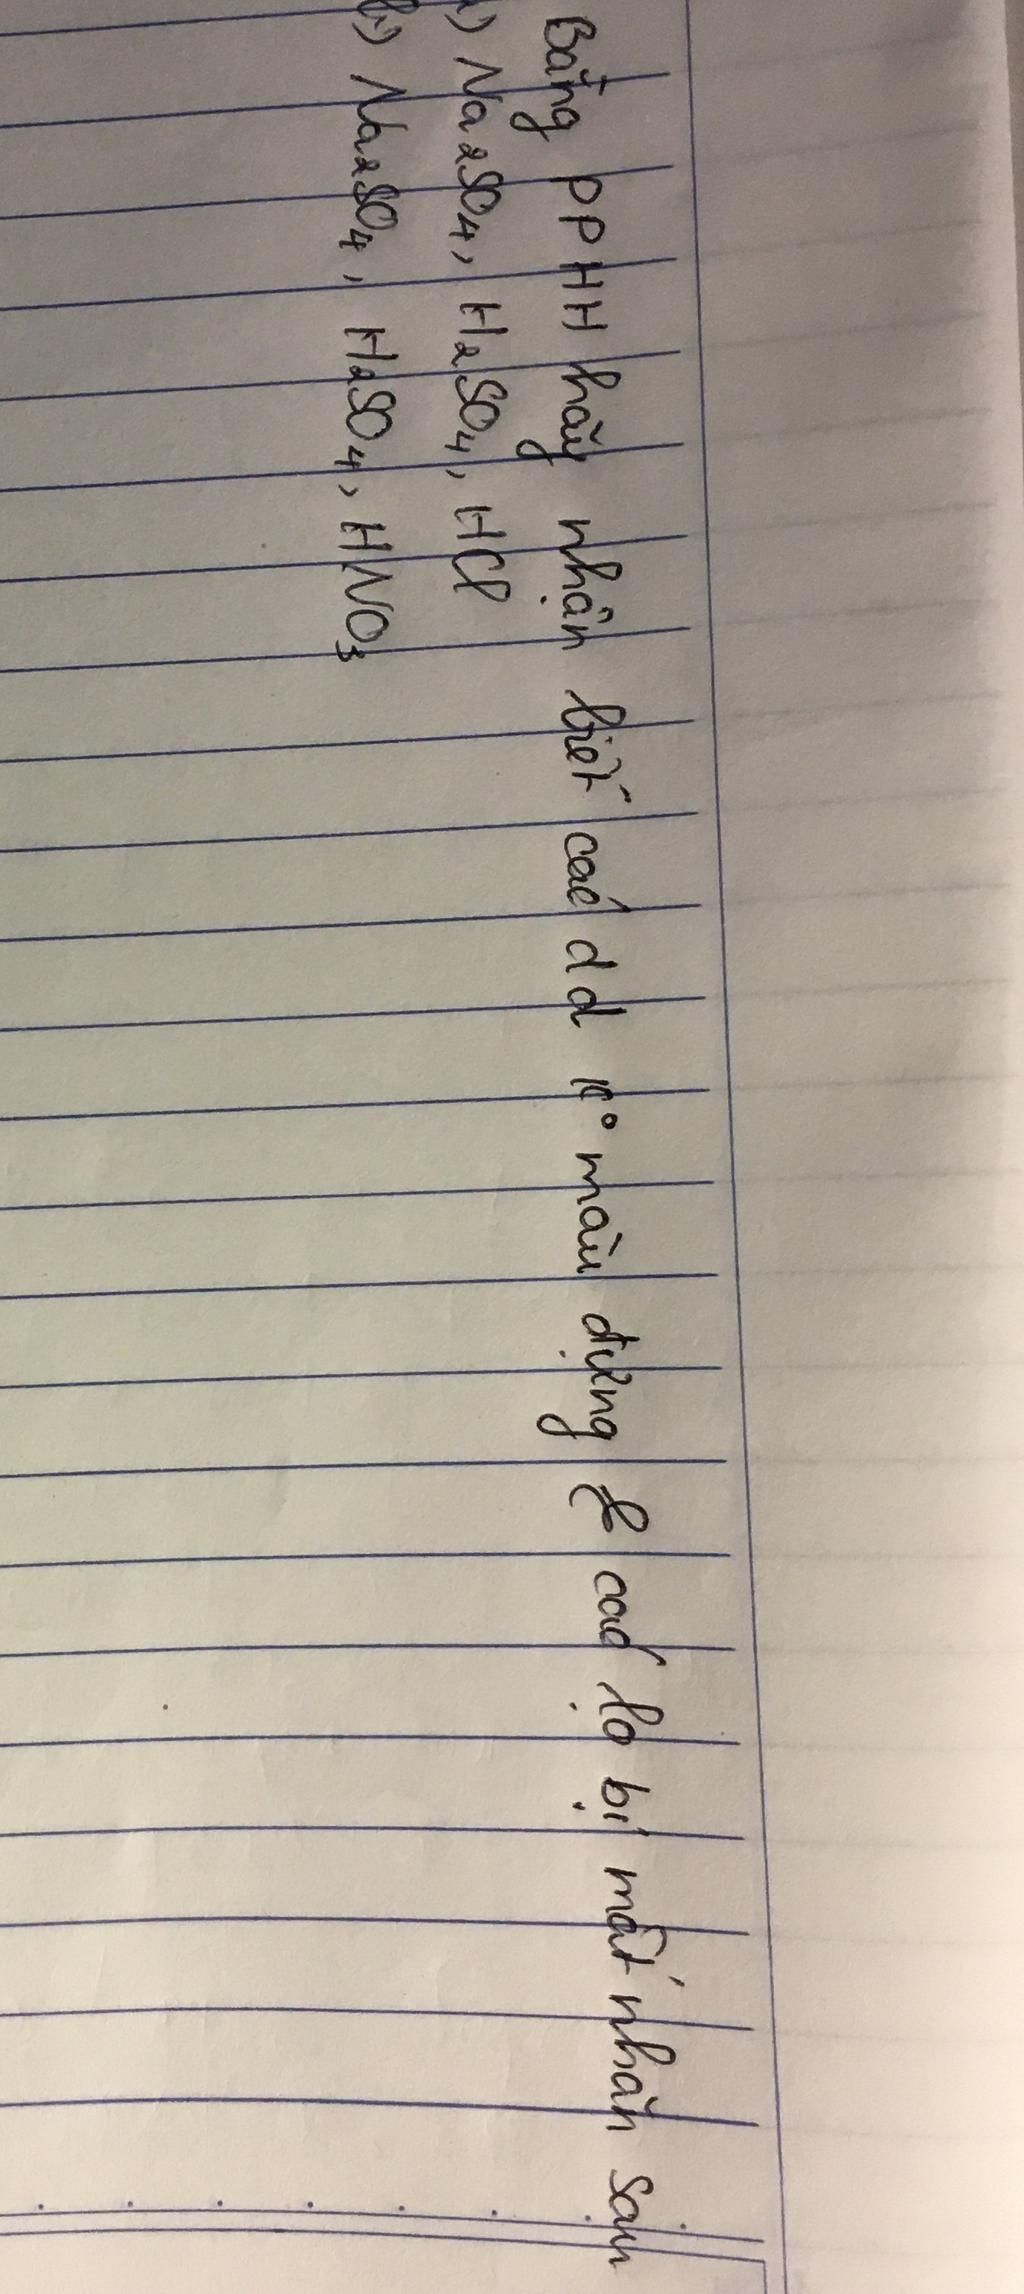 Bằng PPHH hãy nhận biết các dd k° màu đựng các lọ bị mất nhãn sau
a) Na2SO4, H2SO4, HCl
b) Na2SO4, H2SO4, HNO3